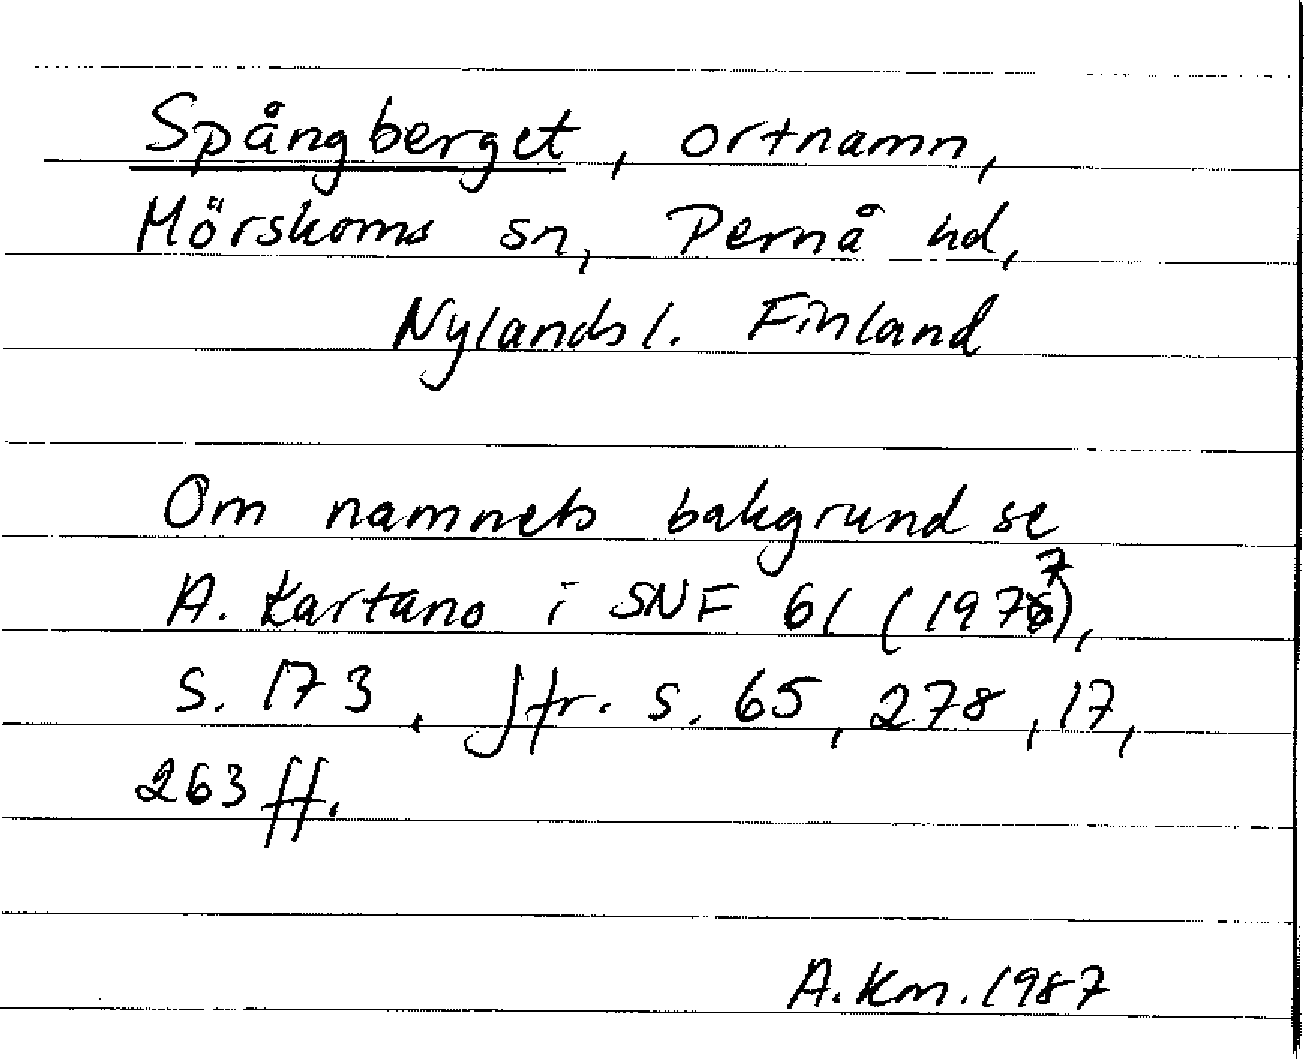 Spångberget, ortnamn,
Mörskoms sn, Pernå hd,
Nylands l. Finland
Om namnets bakgrund se
A. Kartano i SNF 61 (1977),
s. 173. Jfr. s. 65, 278, 17,
263 ff.
A. Km. 1987